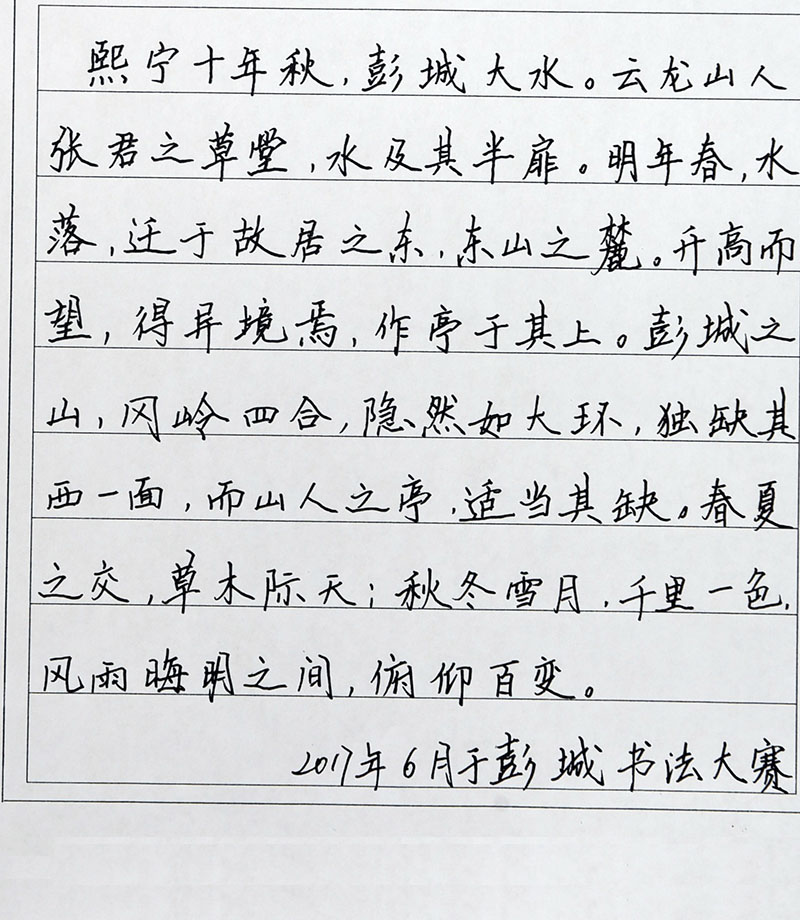 熙宁十年秋，彭城大水。云龙山人
张君之草堂，水及其半扉。明年春，水
落，迁于故居之东，东山之麓。升高而
望，得异境焉，作亭于其上。彭城之
山，冈岭四合，隐然如大环，独缺其
西一面，而山人之亭，适当其缺。春夏
之交，草木际天；秋冬雪月，千里一色，
风雨晦明之间，俯仰百变。
2017年6月于彭城书法大赛